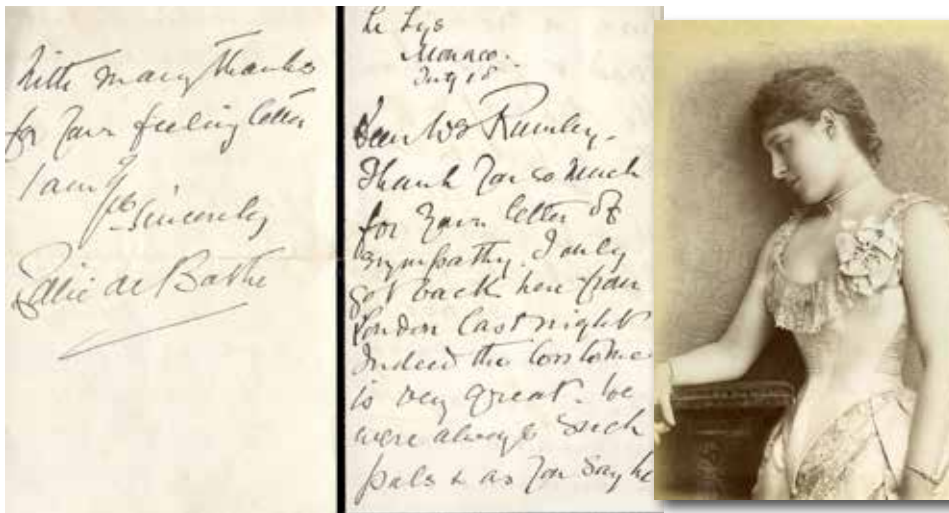 With many thanks
for your feeling letter
I am
Yrs sincerely
Lillie de Bathe
Le Lys
Monaco.
18
Dear Mrs Rumley.
Thank you so much
for your letter of
sympathy. I only
got back here from
London last night
Indeed the loss to me
is very great. We
were always such
pals & as you say he